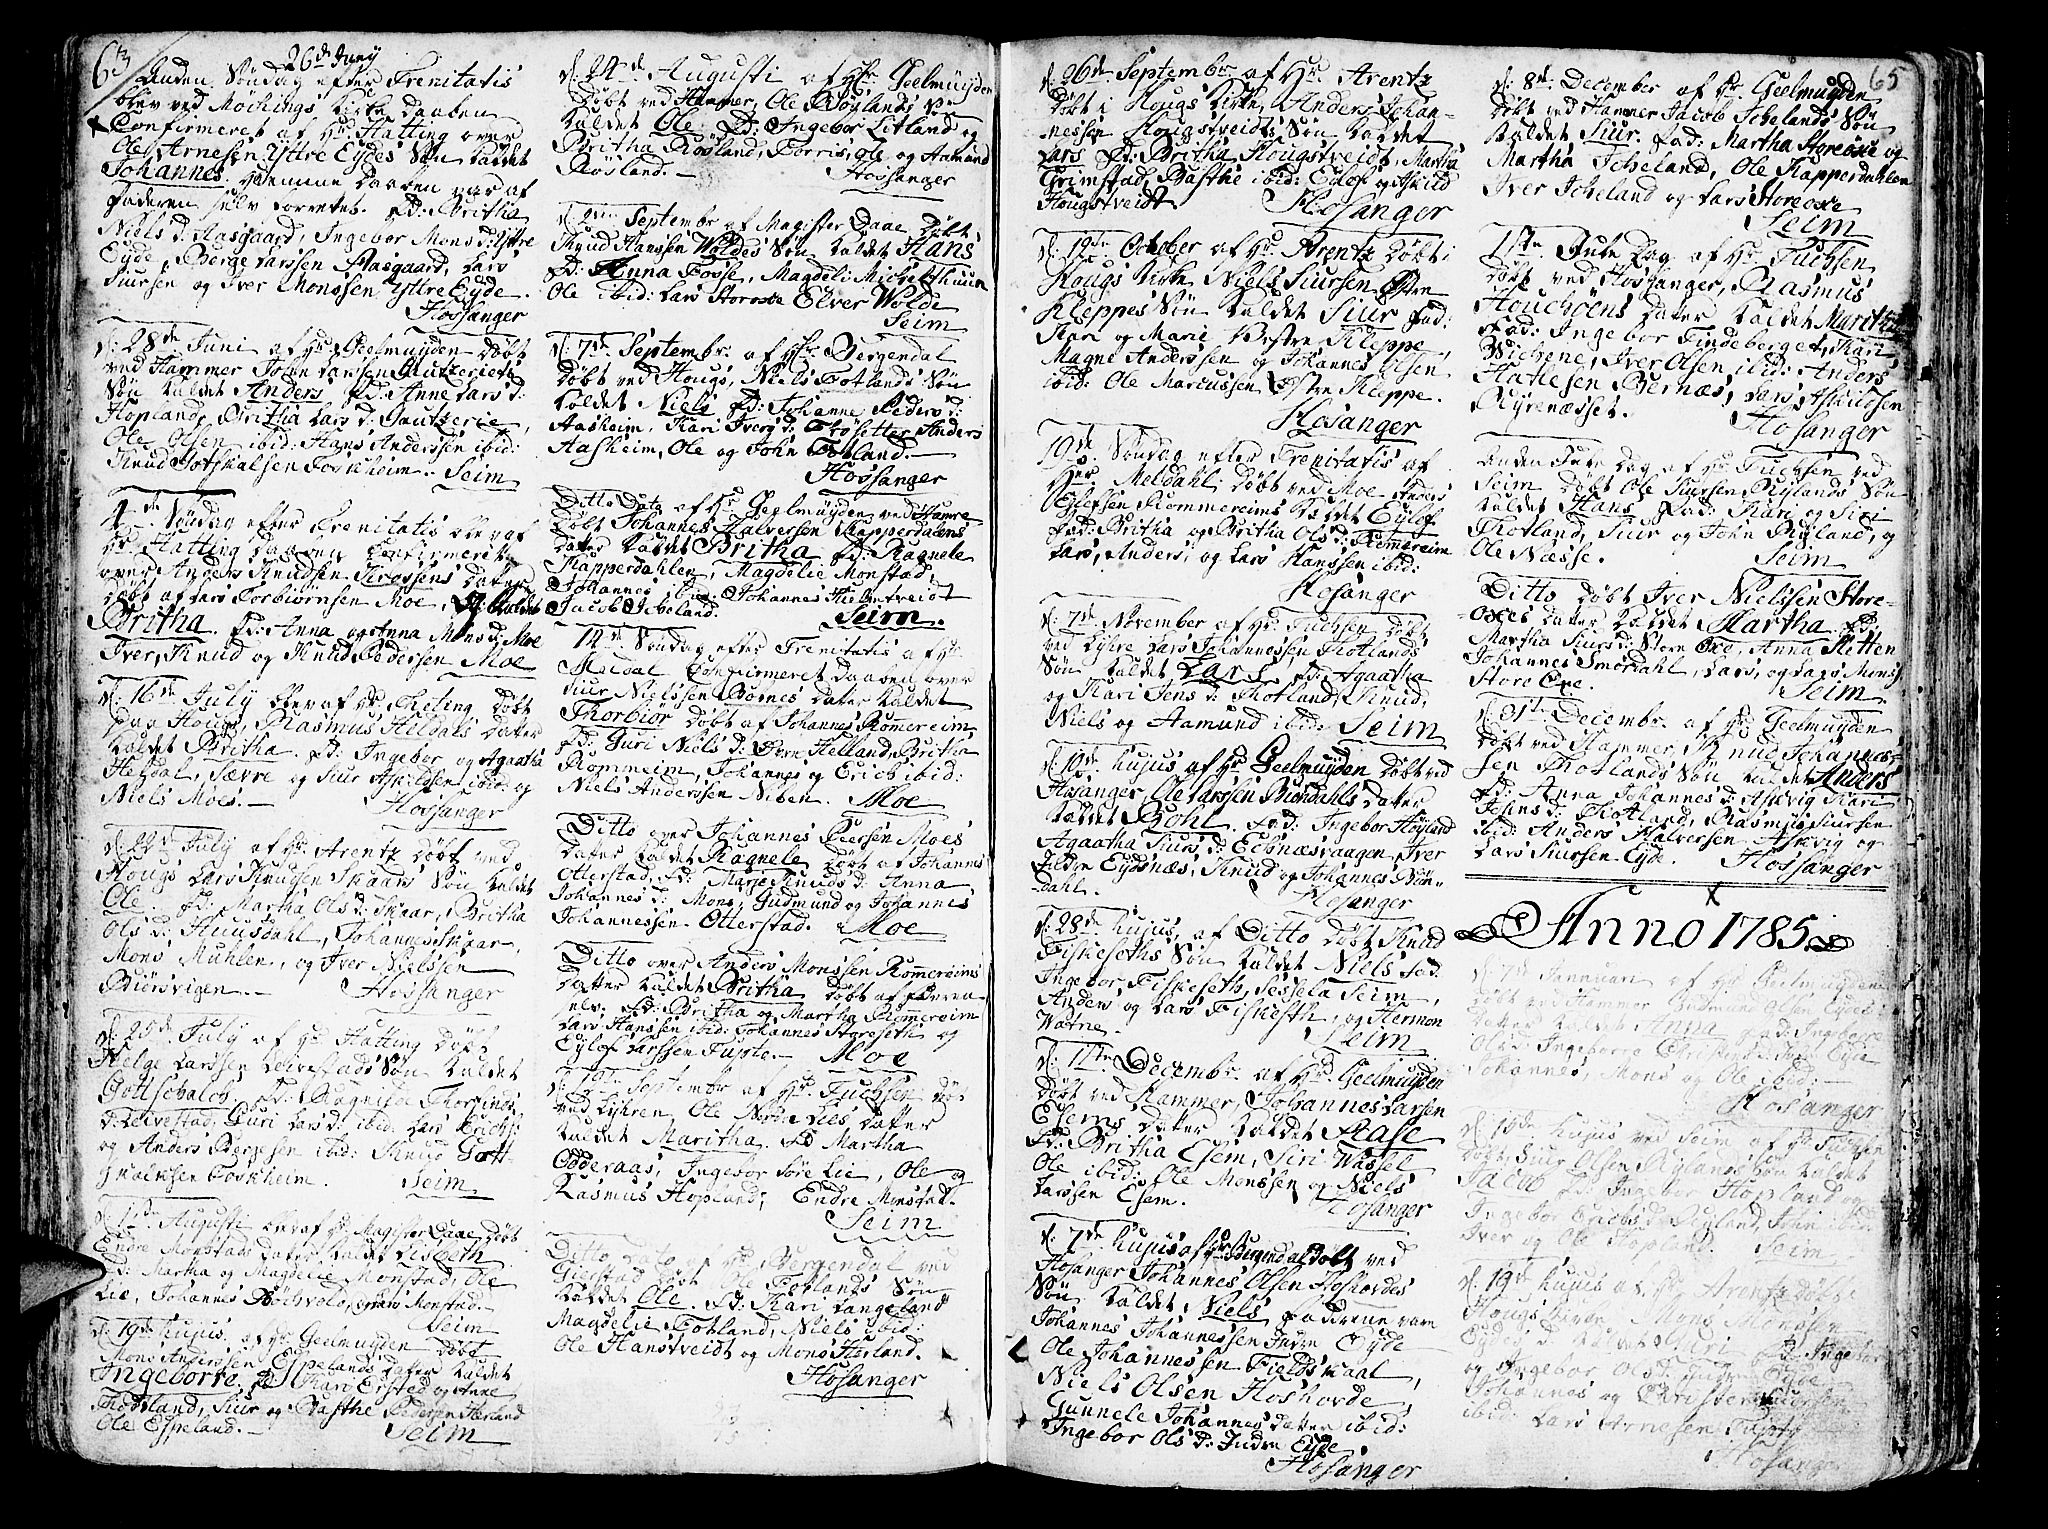 63
26d Junij
Anden Søndag efter Trenitatis
blev ved Möchings Kirke Daaben
Confirmeret af Hr Hatting over
Ole Arnesen Yttre Eydes Søn kaldet
Johannes. hiemme Daaben var af
Faderen selv forrettet. Fd: Britha
Niels d: Hasgaard, Ingebor Mons d: Yttre
Eyde, Berge Larssen Hasgaard, Lars
Siursen og Iver Monssen Yttre Eyde.
Hossanger
d: 28de Juni af Hr Geelmuyden Døbt
ved Hammer John Larssen
Søn kaldet Anders Fd: Anne Lars d:
Hopland, Britha Lars d: Gautzerie,
Ole Olsen ibid: Hans Anderssen ibid:
Knud Fotskalsen Forkheim. Seim
4de Søndag efter Trenitatis blev af
Hr Hatting Daaben Confirmeret
over Anders Knudsen Datter
Døbt af Lars Torbiørnsen Moe, kaldet
Britha. Fd: Anna og Anna Mons d: Moe
Iver, Knud og Knud Pedersen Moe
d: 16de July blev af Hr Døbt
paa Hougs, Rasmus Heldals Datter
kaldet Britha. Fd: Ingebor og Agaatha
Helsdal, Sævre og Siur Askildsen ibid: og
Niels Moes.
Hossanger
July af Hr Arentz Døbt ved
Hougs Lars Knudsen Skaars Søn kaldet
Ole. Fd: Martha Ols d: Skaar, Britha
Ols d: Huusdahl, Johannes Skaar,
Mons Muhlen, og Iver Nielssen
Biørsvigen.
Hossanger
d: 25de July af Hr Hatting Døbt
Helge Larssen Leirestads Søn kaldet
Gottschalch. Fd:
Guri Lars d: ibid: Lars Erichs:
og Anders Bergesen ibid: Knud Gott-
schalksen Forkheim. Seim
Augusti blev af Hr Magister Daae Døbt
Endre Monstads Datter kaldet Lisbeth
Fd: Martha og Magdelie Monstad, Ole
Lie, Johannes Bochvold, Monstad.
Seim
d: 19de hujus. af Hr Geelmuyden Døbt
Mons Anderssen Espelands Datter kaldet
Ingeborre. Fd: Kari Ersted og Anne
Siur og Barthe Pedersen Hærland
Ole Espeland.
Seim
d: 24de Augusti af Hr Geelmuyden
Døbt ved Hammer, Ole Røylands Søn
kaldet Ole. Fd: Ingebor Litland og
Britha Røsland, Torris, Ole og Aamund
Røsland.
Hossanger
Septembr af Magister Daae Døbt
Knud Hansen Woldes Søn kaldet Hans
Fd: Anna Fosse, Magdeli Michelthuun
Ole ibid: Lars Storoxe Elver Wolde
Seim
d: 7de Septembr. af Hr Bergendal
Døbt ved Hougs, Niels Totlands Søn
kaldet Niels Fd: Johanne Peders d:
Aasheim, Kari Ivers d: Anders
Aasheim, Ole og John Totland.
Hossanger
Ditto Dato af Hr Geelmuyden ved Hamre
Døbt Johannes Halversen Kapperdalens
Datter kaldet Britha Fd: Ragnele
Kapperdahlen, Magdelie Monstad,
Johannes ibid: Johannes
Jacob Isceland. Seim.
14de Søndag efter Trenitatis af Hr
Meldal Confirmeret Daaben over
Siur Nielssen Børnes Datter kaldet
Thorbiør Døbt af Johannes Rommereim,
Fd: Guri Niels d: Helland, Britha
Rommereim, Johannes og Erich ibid:
Niels Anderssen Niben. Moe
Ditto over Johannes Peersen Moes
Datter kaldet Ragnele Døbt af Johannes
Otterstad. Fd: Marje Knuds d: Anna
Johannes d: Mons, Gudmund og Johannes
Johannessen Otterstad. Moe
Ditto over Anders Monssen Rommereims
Datter kaldet Britha Døbt af Faderen
selv. Fd: Britha og Martha Rommereim
Lars Hanssen ibid: Johannes Storeseth og
Eylof Larssen Fyxte. Moe
Septembr af Hr Fuchsen døbt
ved Lyhren, Ole Nordre Lies, Datter
kaldet Maritha. Fd Martha
Odderaas, Ingebor Søre Lie, Ole og
Rasmus Hopland; Endre Monstad.
Seim
Ditto Dato af Hr Bergendal ved
Gierstad Døbt Ole Totlands Søn
kaldet Ole. Fd: Kari Langeland
Magdelie Totland, Niels ibid:
Ole Hanstveidt og Mons Hærland.
Hosanger
65
d: 26de Septembr. af Hr Arentz
Døbt i Hougs Kirke, Anders Johan-
nessen Hougstveidts Søn kaldet
Lars Fd: Britha Hougstveidt, Martha
Grimstad, Barthe ibid: Eylof og Askild
Hougstveidt
Hosanger
d: 19de October af Hr Arentz Døbt i
Hougs Kirke Niels Siursen Østre
Kleppes Søn kaldet Siur Fad:
Kari og Mari Vestre Kleppe,
Magne Anderssen og Johannes Olsen
ibid: Ole Marcussen Østre Kleppe.
Hosanger
19de Søndag efter Trenitatis af
Hr Meldahl Døbt ved Moe Anders
Rommereims kaldet Eylof
Fad: Britha og Britha Ols d: Romereim
Lars, Anders, og Lars Hanssen ibid:
Hosanger
d: 7de November af Hr Fuchsen Døbt
ved Lyhre Lars Johannessen Totlands
Søn kaldet Lars Fd: Agaatha
og Kari Jens d: Totland, Knud,
Niels og Aamund ibid: Seim
d: 10de hujus af Hr Geelmuyden Døbt ved
Hosanger, Ole Larssen Biøndahls Datter
kaldet Bohl. Fad: Ingebor Høyland
Agaatha Siurs d: Echnæsvaagen, Iver
Eydsnæs, Knud og Johannes Biøn-
dahl.
Hosanger
d: 28de hujus, af Ditto Døbt Knud
Fiskeseths Søn kaldet Niels Fad:
Ingebor Fiskeseth, Sessela Seim,
Anders og Lars Fiskesth, og Hermon
Watne.
Seim
Decembr. af Hr Geelmuyden
Døbt ved Hammer, Johannes Larsen
Esems Datter kaldet Aase
Fd: Britha Esem, Siri Wassel
Ole ibid: Ole Monssen og Niels
Larssen Esem. Hosanger
d: 7de hujus af Hr Bergendal Døbt ved
Hosanger Johannes Olsen Hoshovdes
Søn kaldet Niels. Faddrene vare
Johannes Johannessen Indre Eyde
Ole Johannessen Fieldskaal,
Niels Olsen Hoshovde,
Gunnele Johannes datter ibid:
Ingebor Ols d: Indre Eyde
Hosanger
d: 8de December af Hr Geelmuyden
Døbt ved Hammer Jacob Isehelands Søn
kaldet Siur. Fad: Martha Storeoxe og
Martha Iseheland, Ole Kapperdahlen
Iver Iseheland og Lars Storeoxe
Seim
1ste Jule Dag af Hr Fuchsen
Døbt ved Hossanger, Rasmus
Houchøens Datter kaldet Maritha
Fad: Ingebor Tindeberget, Kari
Wichene, Iver Olsen ibid: Anders
Hakesen Bernæs, Lars Askildsen
Ryrenæsset. Hosanger
Anden Jule Dag af Hr Fuchsen ved
Seim Døbt Ole Siursen Rylands Søn
kaldet Hans Fad: Kari og Siri
Totland, Siur og John Ryland, og
Ole Næsse. Seim
Ditto Døbt Iver Nielssen Store-
oxes Datter kaldet Martha. Fd:
Martha Siurs d: Store Oxe, Anna Hetten
Johannes Smørdahl, Lars, og Lars Mons
Store Oxe. Seim
d: 31te Decembr. af Hr Geelmuyden
Døbt ved Hammer, Knud Johannes-
sen Totlands Søn kaldet Anders
Fd: Anna Johannes d: Askvig Kari
Jens d: Totland, Rasmus Siursen
ibid: Anders Halversen Askvig og
Lars Siursen Eyde. Hossanger
Anno 1785.
d: 7de Januari af Hr Geelmuyden
Døbt ved Hammer Gudmund Olsen Eydes
Datter kaldet Anna Fad: Ingeborre
Ols d: Ingeborre Christens d: Eyde
Johannes, Mons og Ole ibid:
Hosanger
hujus ved Seim af Hr Fuchsen
Døbt, Siur Olsen Rylands Søn kaldet
Jacob Fd: Ingebor Hopland og
Ingebor Erichs d: Ryland, John ibid:
Iver og Ole Hopland. Seim
d: 19de hujus af Hr Arentz Døbt i
Hougs Kirke, Mons Monsen
kaldet Fd: Ingebor
og Ingebor Ols d: Indre Eyde
Johannes og Christen Siursen
ibid: Lars Arnesen Fyxte
Hosanger